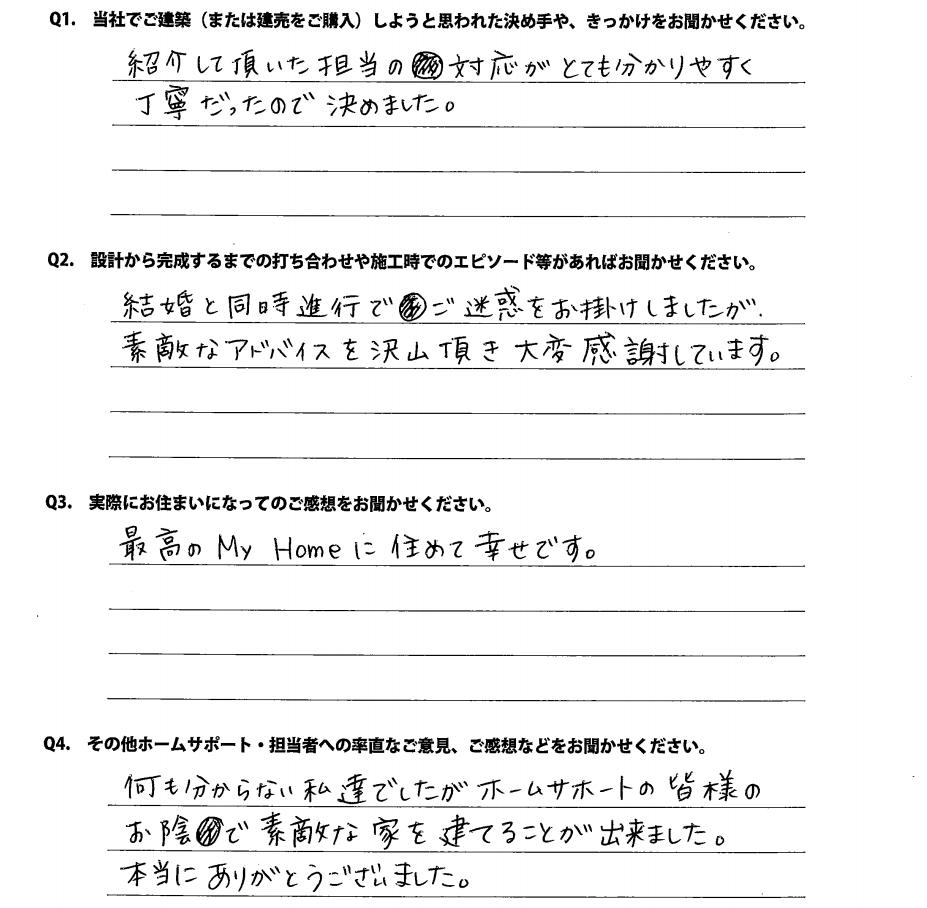 Q1. 当社でご建築（または建売をご購入）しようと思われた決め手や、きっかけをお聞かせください。
紹介して頂いた担当の対応がとても分かりやすく
丁寧だったので決めました。
Q2. 設計から完成するまでの打ち合わせや施工時でのエピソード等があればお聞かせください。
結婚と同時進行でご迷惑をお掛けしましたが、
素敵なアドバイスを沢山頂き大変感謝しています。
Q3. 実際にお住まいになってのご感想をお聞かせください。
最高のMy Homeに住めて幸せです。
Q4. その他ホームサポート・担当者への率直なご意見、ご感想などをお聞かせください。
何も分からない私達でしたがホームサポートの皆様の
お陰で素敵な家を建てることが出来ました。
本当にありがとうございました。